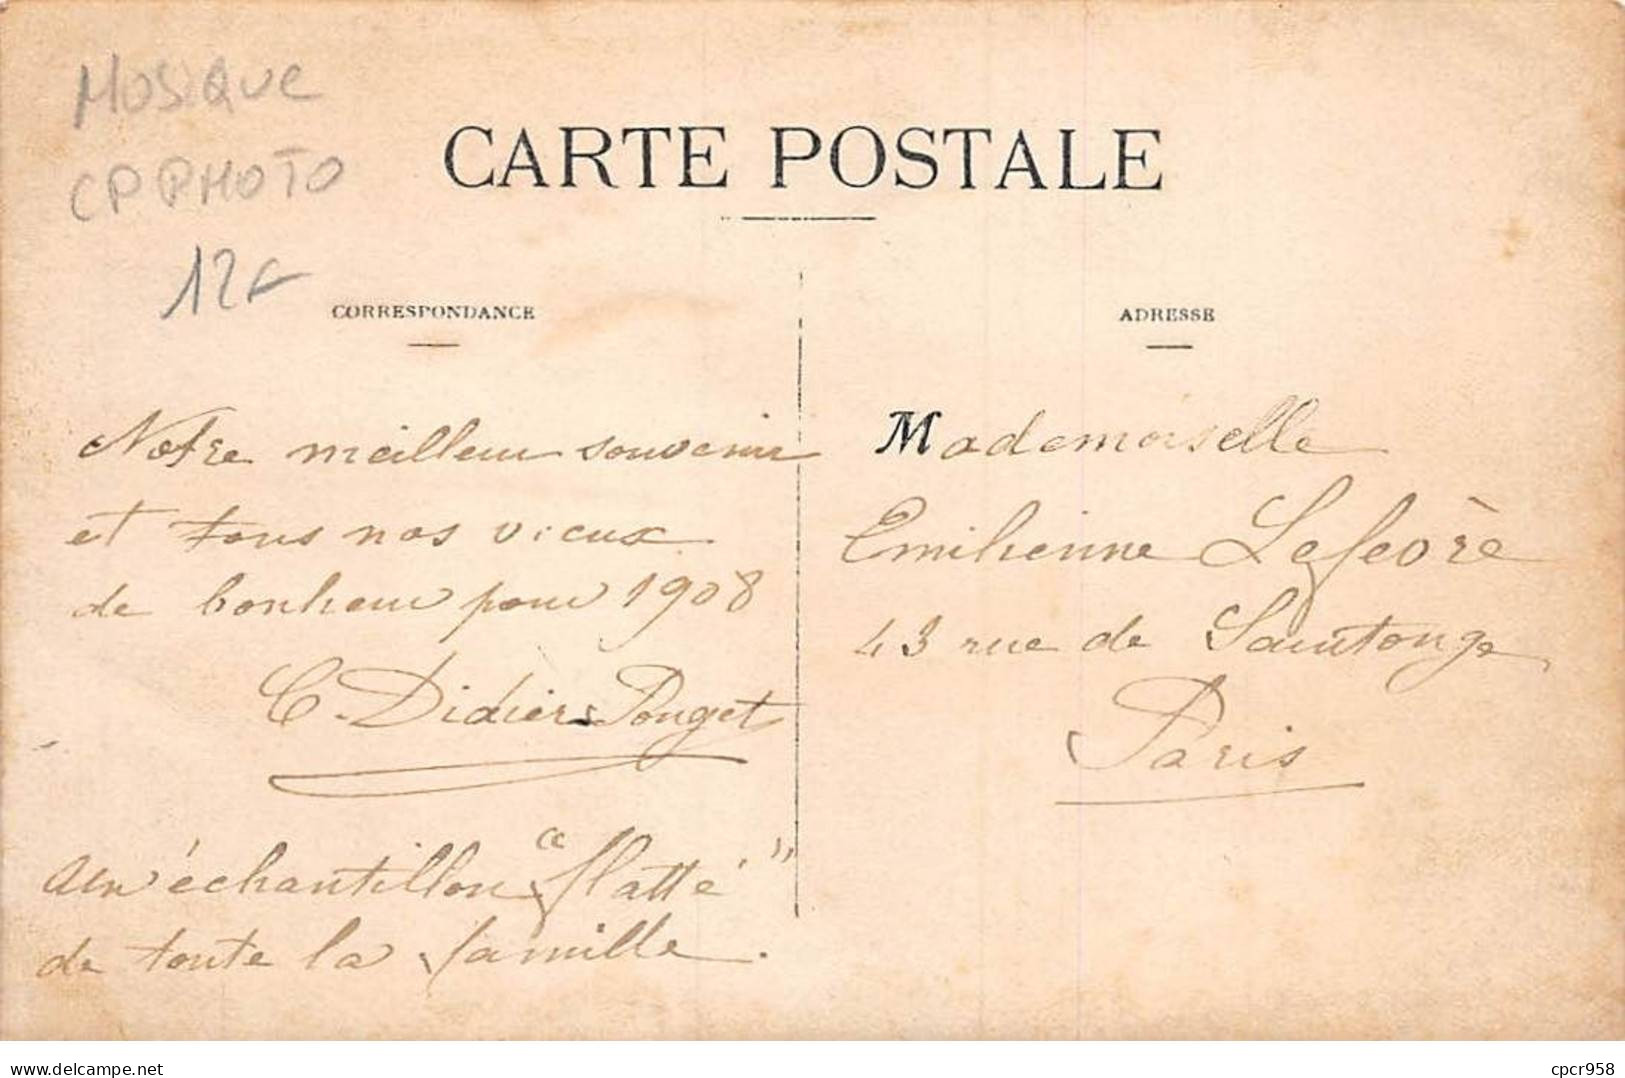 MUSIQUE
CP PHOTO
12F
CARTE POSTALE
CORRESPONDANCE
ADRESSE
Notre meilleur souvenir
et tous nos vieux
de bonheur pour 1908
C. Didier Pouget
un échantillon "flatté"
de toute la famille.
Mademoiselle
Emilienne Lefevre
43 rue de Saintonge
Paris
www.delcampe.net
cpcr958